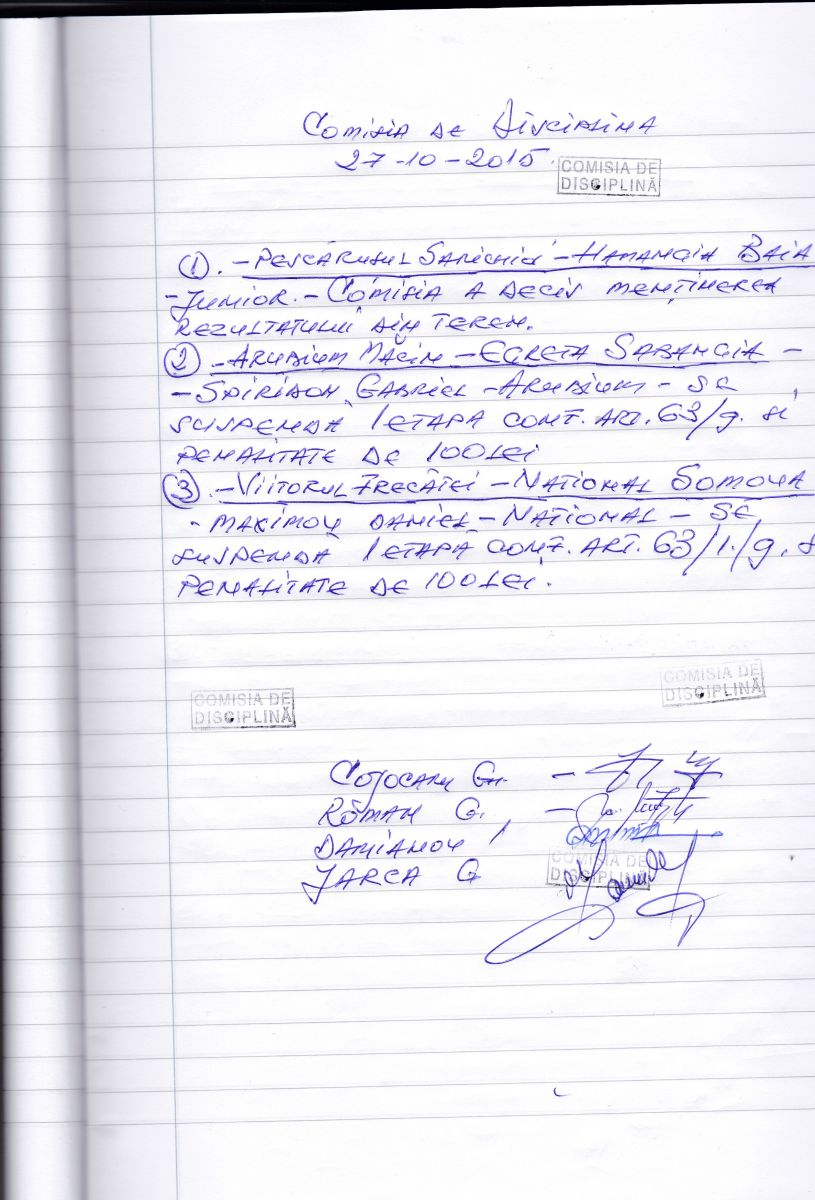 Comisia de Disciplina
27-10-2015.
COMISIA DE
DISCIPLINĂ
①. - Pescărușul Sarichioi - Hamangia Baia
- Junior. - Comisia a decis menținerea
rezultatului din teren.
② - Arubium Măcin - Egreta Sabangia -
- Spiridon Gabriel - Arubium - se
suspendă 1 etapă conf. art. 63/g. si
penalitate de 100 lei
③. - Viitorul Frecăței - National Somova
- Maximov Daniel - National - se
suspendă 1 etapă conf. art. 63/1./g. s
penalitate de 100 lei.
COMISIA DE
DISCIPLINĂ
COMISIA DE
DISCIPLINĂ
Cojocaru Gh. -
Roman G. -
Damianov I
Jarca G
COMISIA DE
DISCIPLINĂ